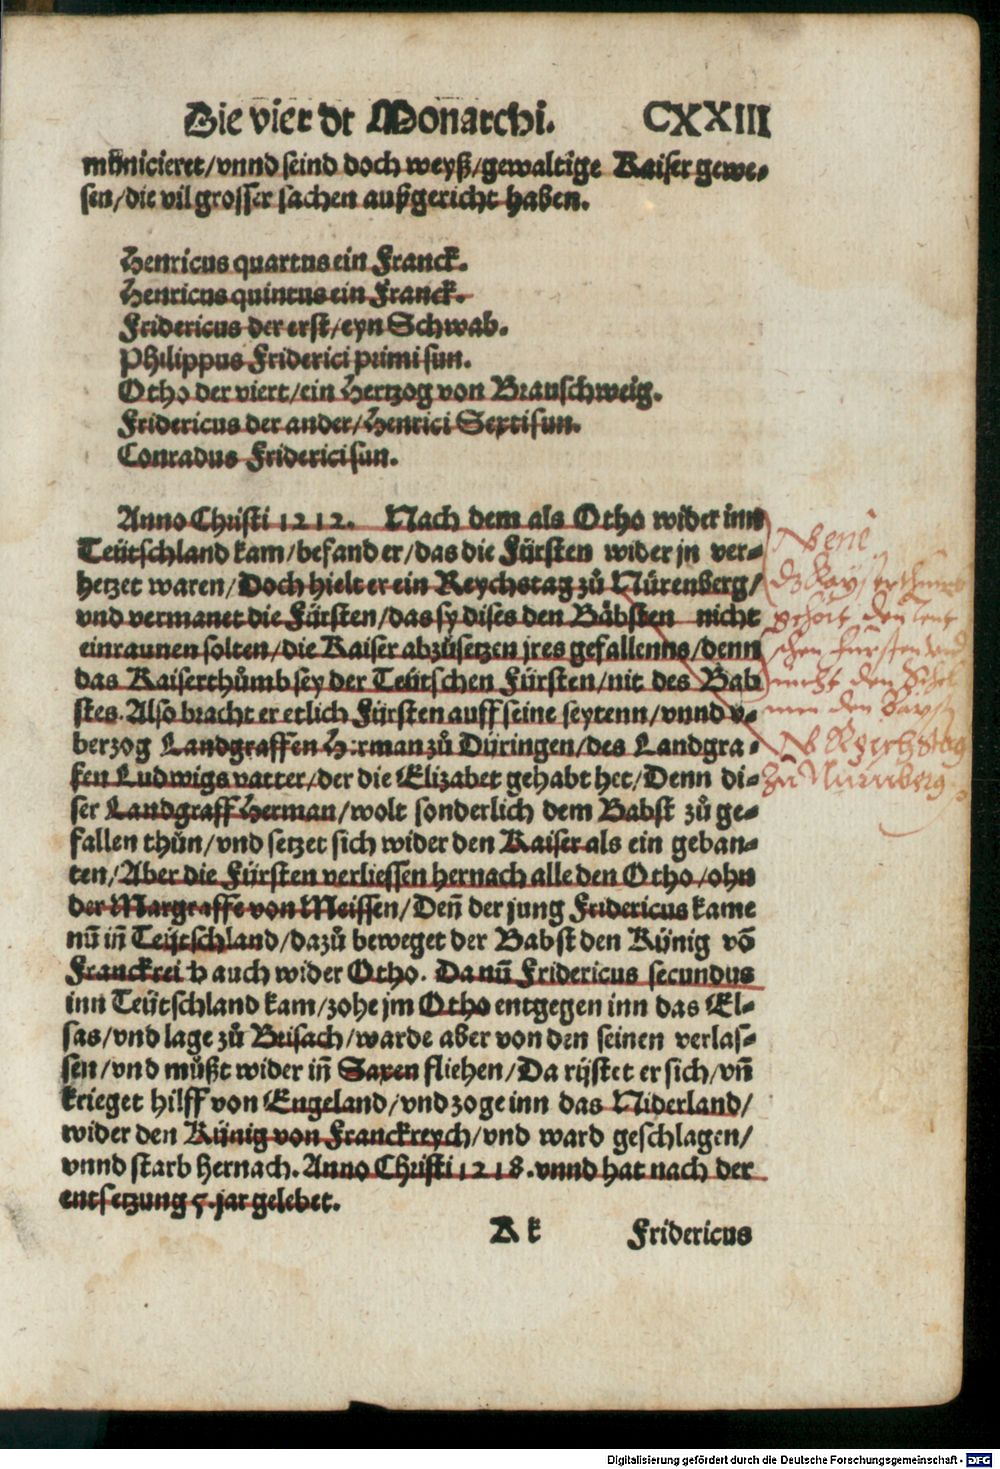 Die vier dt Monarchi. CXXIII
mūnicieret/vnnd seind doch weyß/gewaltige Kaiser gewe-
sen/die vil grosser sachen außgericht haben.
Henricus quartus ein Franck.
Henricus quintus ein Franck.
Fridericus der erst/eyn Schwab.
Philippus Friderici primi sun.
Otho der viert/ein Hertzog von Brauschweig.
Fridericus der ander/Henrici Sexti sun.
Conradus Friderici sun.
Anno Christi 1212. Nach dem als Otho wider inn
Teütschland kam/befand er/das die Fürsten wider jn ver-
hetzet waren/Doch hielt er ein Reychstag zů Nürenberg/
vnd vermanet die Fürsten/das sy dises den Bäbsten nicht
einraunen solten/die Kaiser abzůsetzen jres gefallenns/denn
das Kaiserthůmb sey der Teütschen Fürsten/nit des Bab
stes. Also bracht er etlich Fürsten auff seine seytenn/vnnd v-
berzog Landgraffen Herman zů Düringen/des Landgra-
fen Ludwigs vatter/der die Elizabet gehabt het/Denn di-
ser Landgraff Herman/wolt sonderlich dem Babst zů ge-
fallen thůn/vnd setzet sich wider den Kaiser als ein geban-
ten/Aber die Fürsten verliessen hernach alle den Otho/ohn
der Margraffe von Meissen/Deñ der jung Fridericus kame
nū iñ Teütschland/dazů beweget der Babst den Künig vō
Franckreich auch wider Otho. Da nū Fridericus secundus
inn Teütschland kam/zohe jm Otho entgegen inn das El-
sas/vnd lage zů Brisach/warde aber von den seinen verlas-
sen/vnd můßt wider iñ Saxen fliehen/Da rüstet er sich/vñ
krieget hilff von Engeland/vnd zoge inn das Niderland/
wider den Künig von Franckreych/vnd ward geschlagen/
vnnd starb hernach. Anno Christi 1218. vnnd hat nach der
entsetzung 5. jar gelebet.
K k Fridericus
N bene
dz Kayserthumb
gehört den Teut
schen fürsten vnd
nicht den
men den
NB Reychstag
zu Nürnberg.
Digitalisierung gefördert durch die Deutsche Forschungsgemeinschaft - DFG